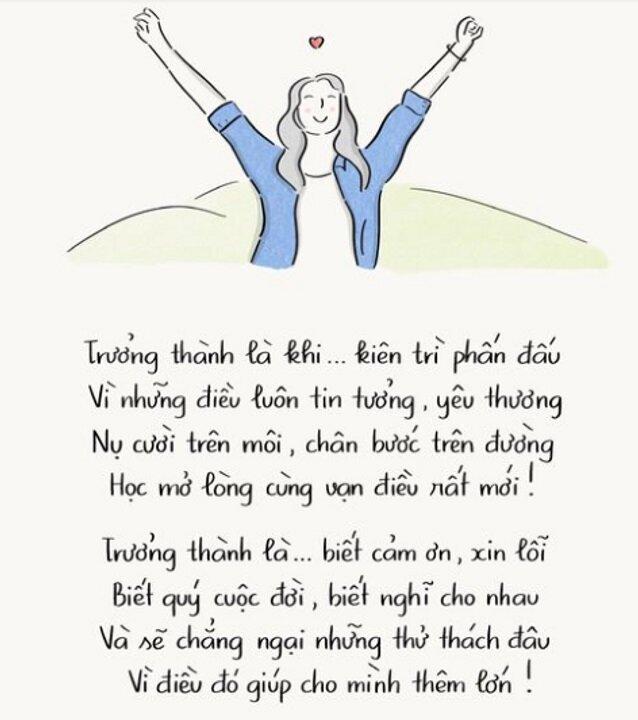 Trưởng thành là khi... kiên trì phấn đấu
Vì những điều luôn tin tưởng, yêu thương
Nụ cười trên môi, chân bước trên đường
Học mở lòng cùng vạn điều rất mới!
Trưởng thành là... biết cảm ơn, xin lỗi
Biết quý cuộc đời, biết nghĩ cho nhau
Và sẽ chẳng ngại những thử thách đâu
Vì điều đó giúp cho mình thêm lớn!